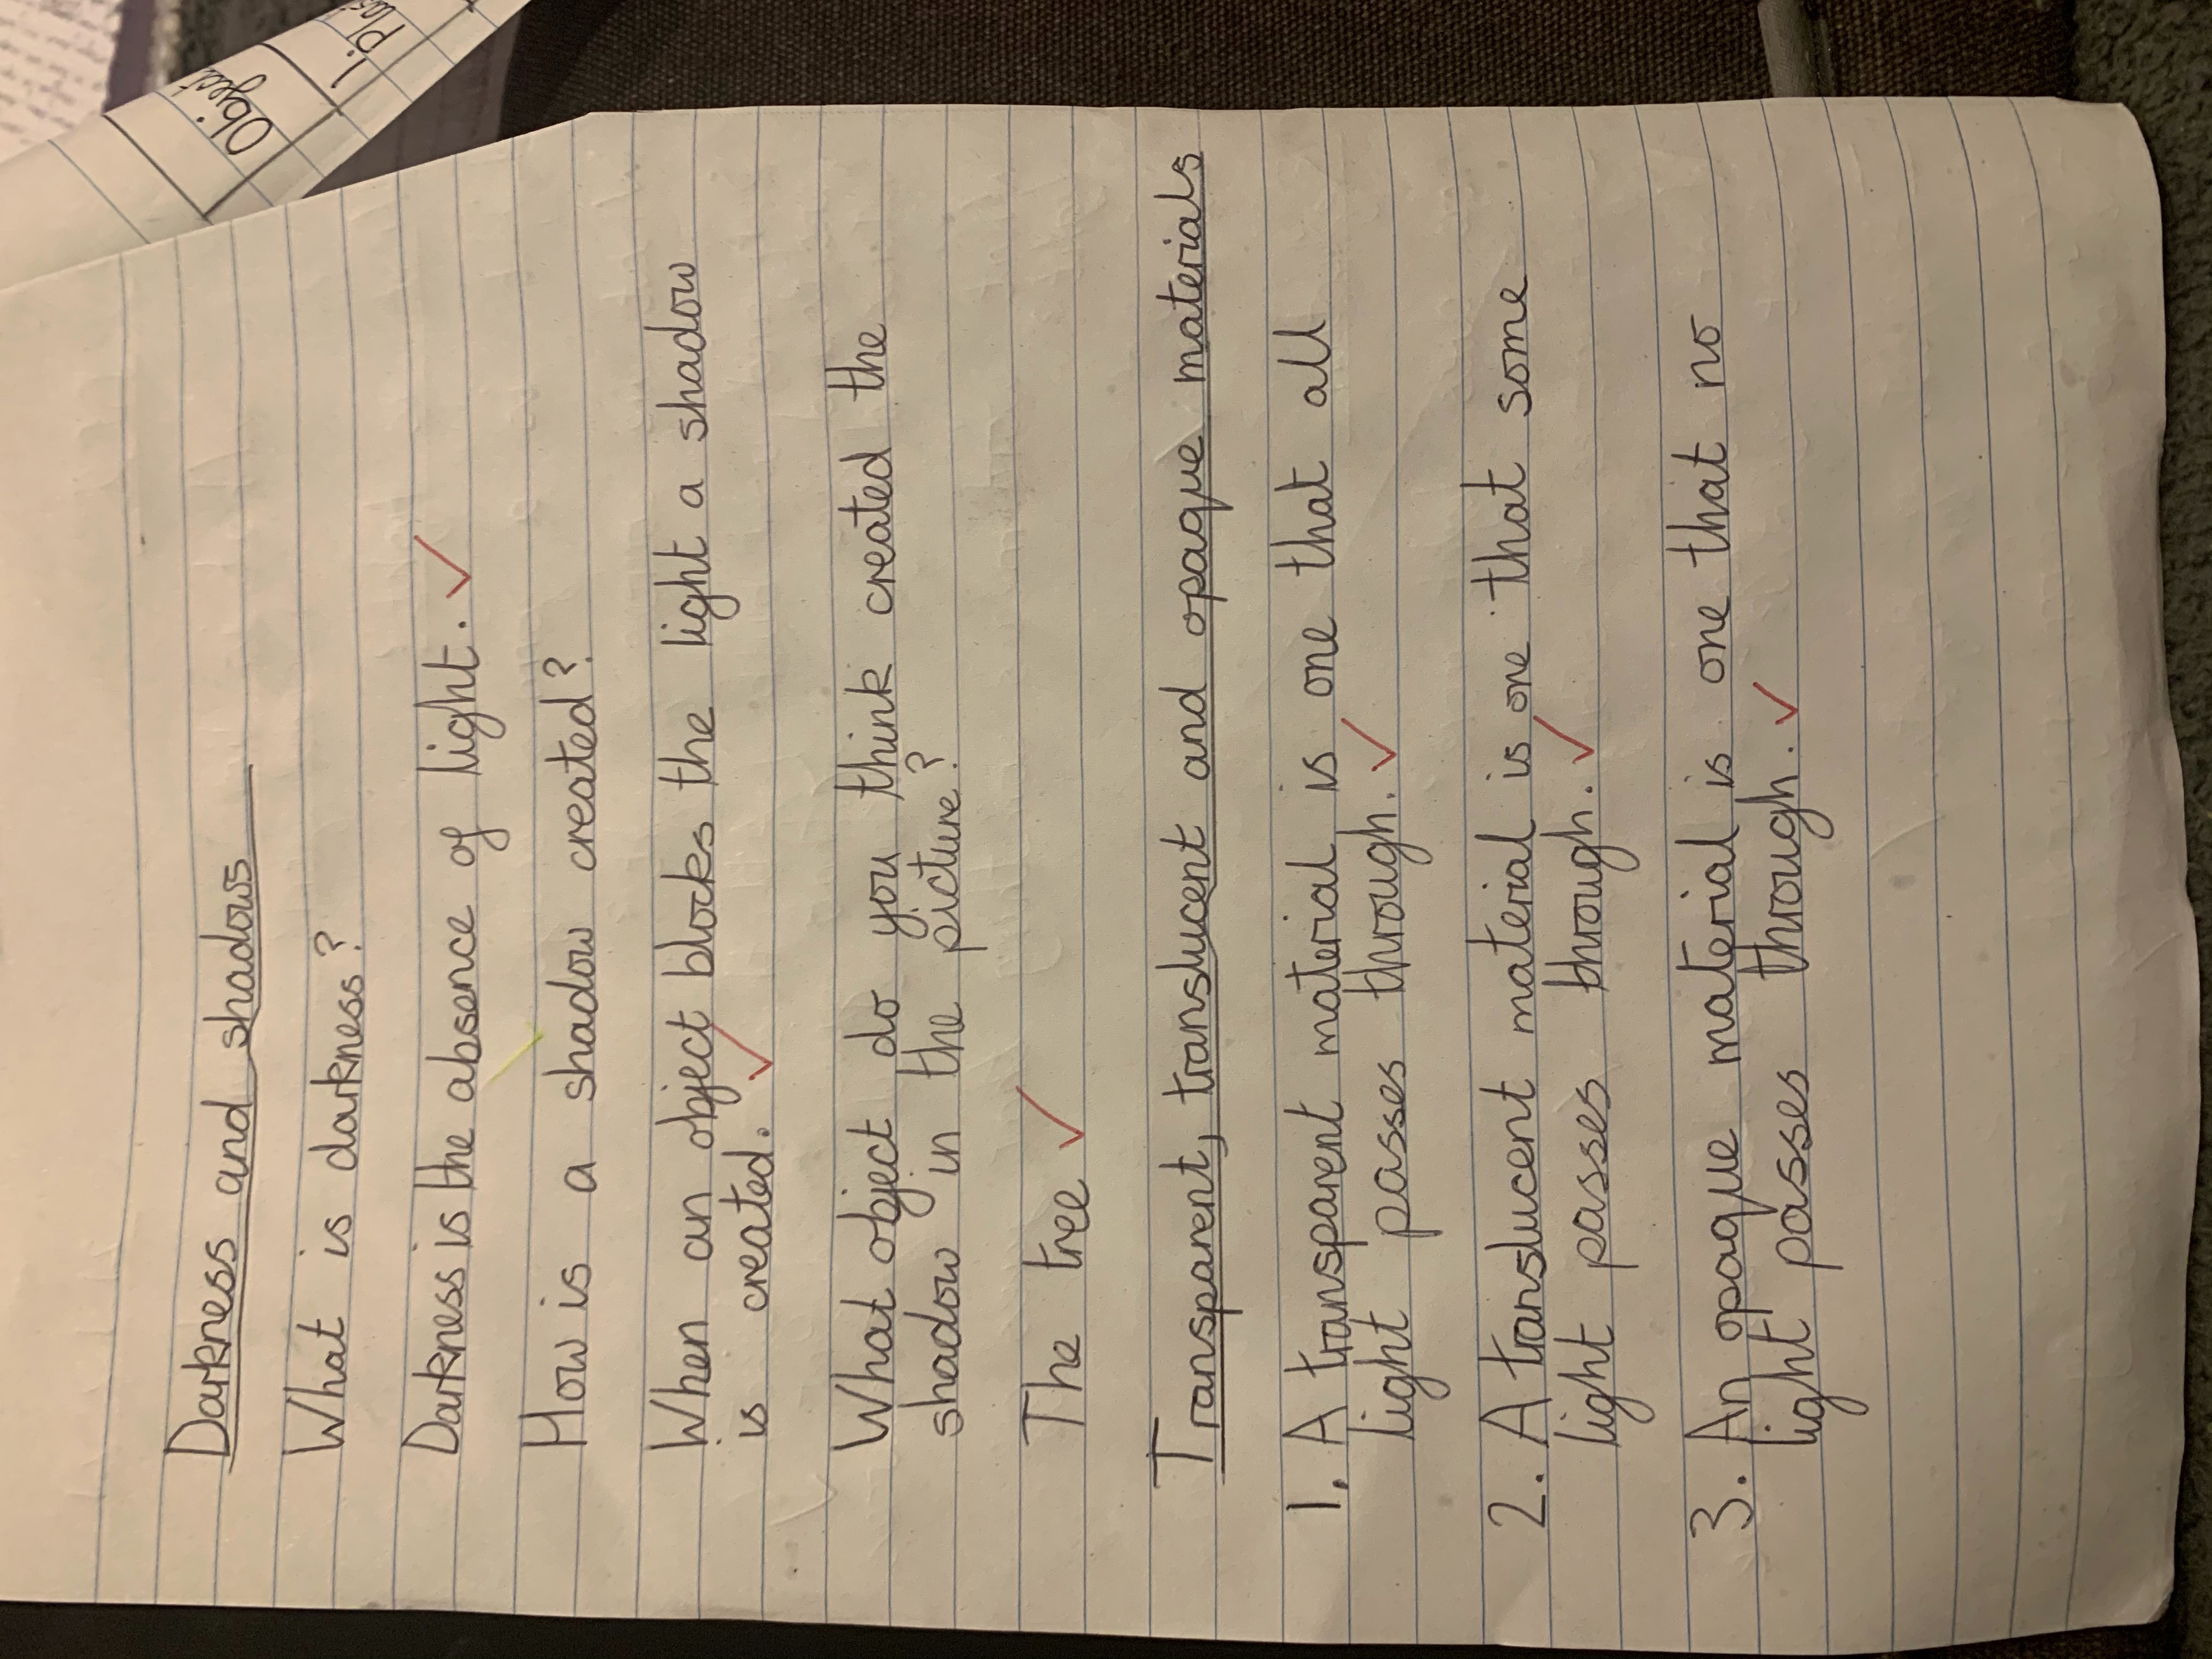 Darkness and shadows
What is darkness?
Darkness is the absence of light.
How is a shadow created?
When an object blocks the light a shadow
is created.
What object do you think created the
shadow in the picture?
The tree
Transparent, translucent and opaque materials
1. A transparent material is one that all
light passes through.
2. A translucent material is one that some
light passes through.
3. An opaque material is one that no
light passes through.
Object
1.